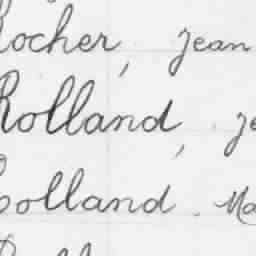 Rocher, Jean
Rolland, Je
Rolland. Ma